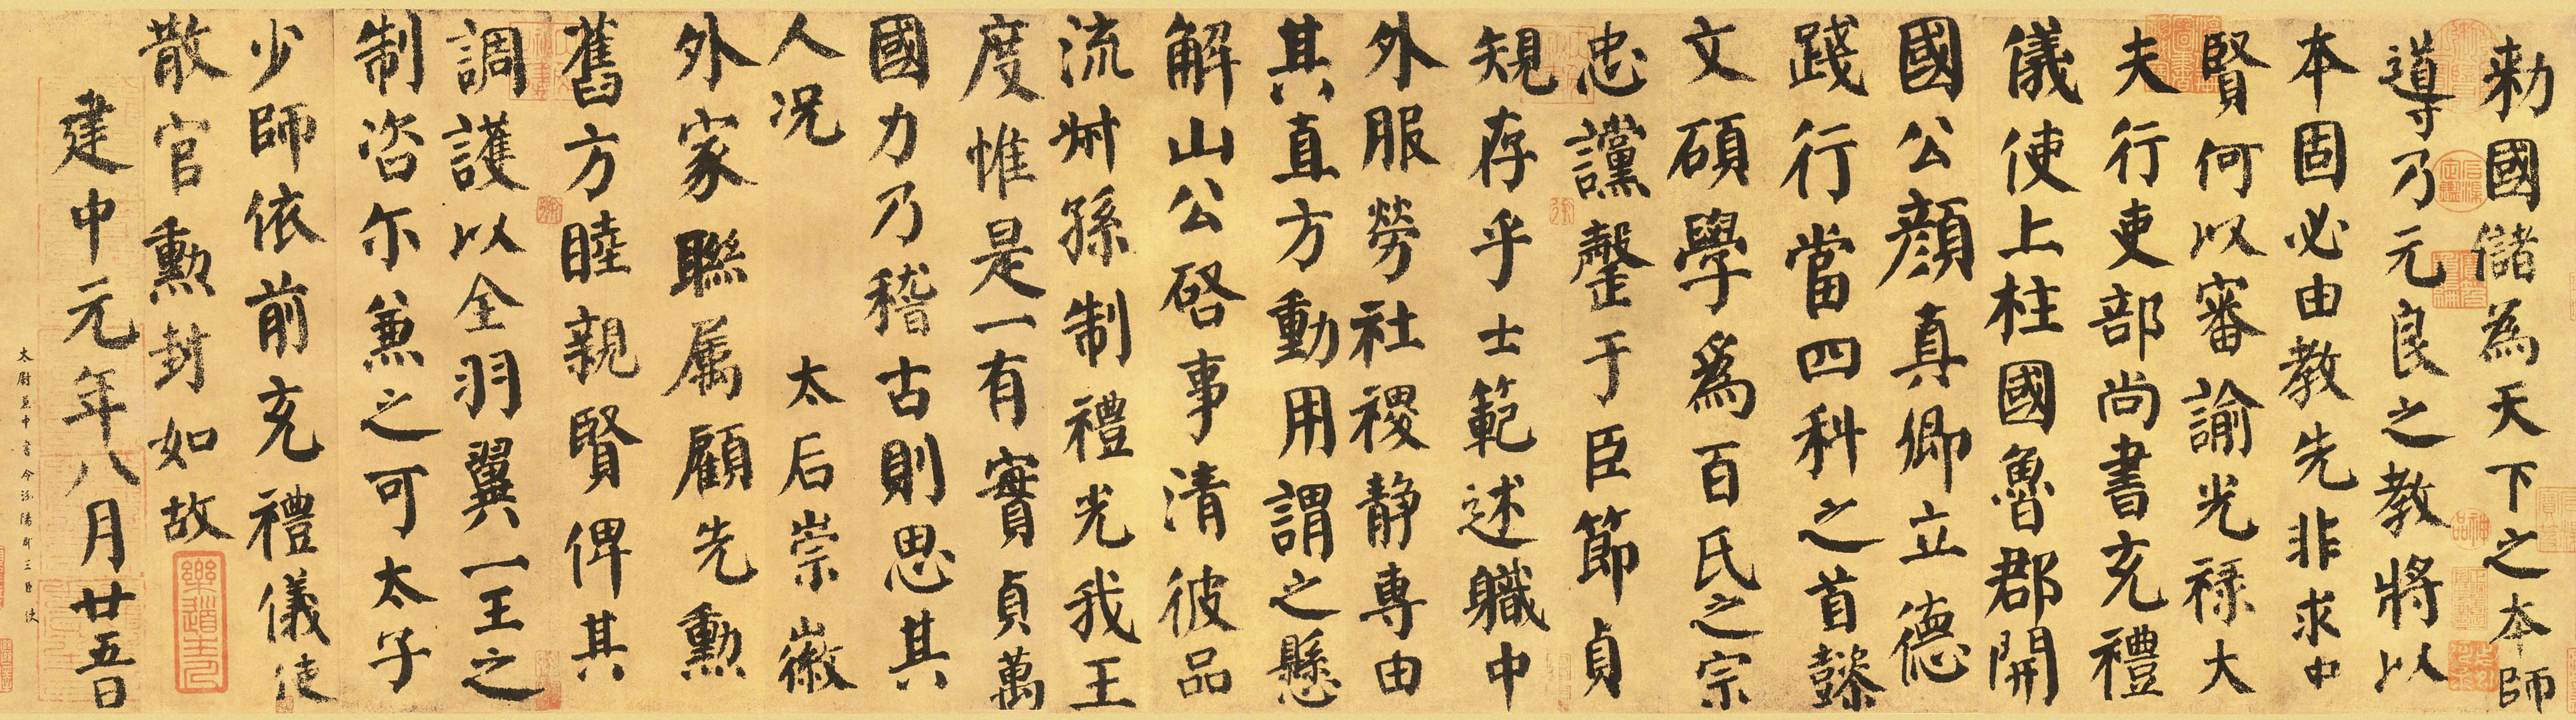 勅國儲為天下之本師
導乃元良之教將以
本固必由教先非求中
賢何以審諭光祿大
夫行吏部尚書充禮
儀使上柱國魯郡開
國公顏真卿立德
踐行當四科之首懿
文碩學為百氏之宗
忠讜罄于臣節貞
規存乎士範述職中
外服勞社稷静專由
其直方動用謂之懸
解山公啓事清彼品
流叔孫制禮光我王
度惟是一有實貞萬
國力乃稽古則思其
人况 太后崇徽
外家聯属顧先勲
舊方睦親賢俾其
調護以全羽翼一王之
制咨尔兼之可太子
少師依前充禮儀使
散官勲封如故
建中元年八月廿五日
太尉兼中書令汾陽郡王臣使